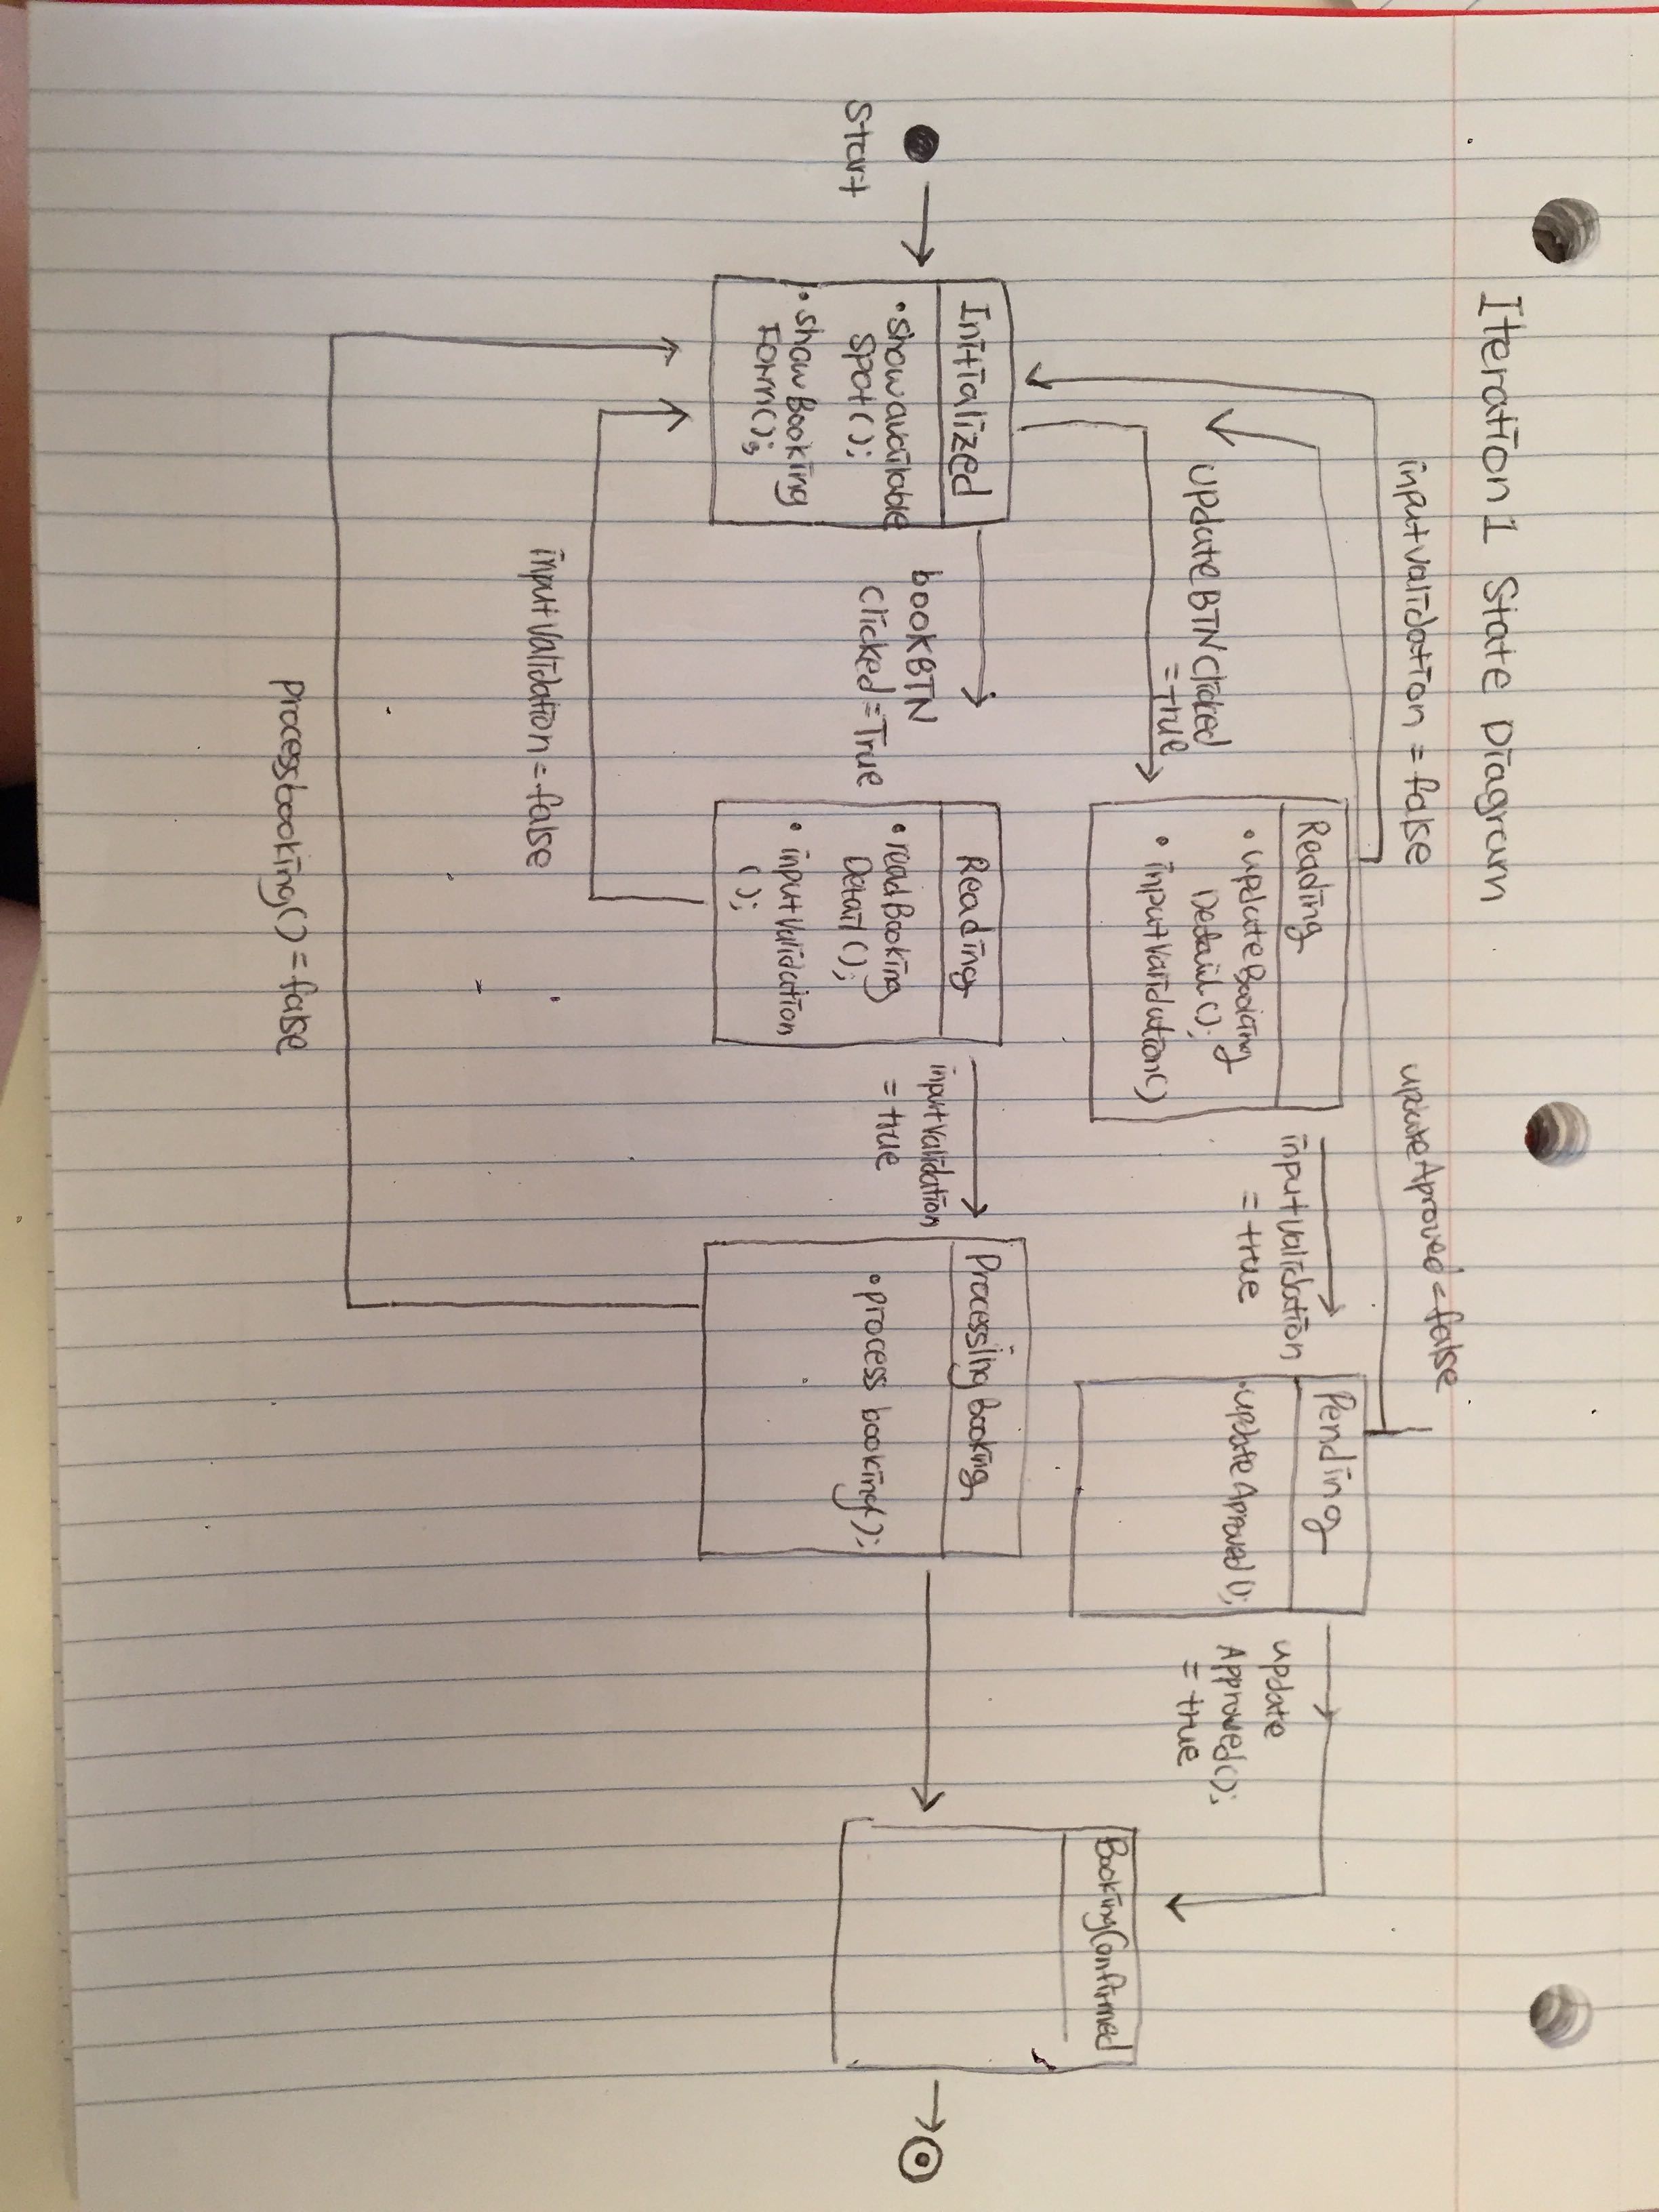 Iteration 1 State Diagram
inputvalidation = false
updateAproved = false
Reading
• updateBooking
Detail();
• inputValidation()
inputvalidation
= true
Pending
• updateAproved();
update
Approved();
= true
updateBTNclicked
= True
BookingConfirmed
Start
Initialized
• showavailable
spot();
• showBooking
Form();
bookBTN
clicked = True
Reading
• readBooking
Detail();
• inputValidation
();
inputvalidation
= true
Processing Booking
• process booking();
inputValidation = false
processbooking() = false